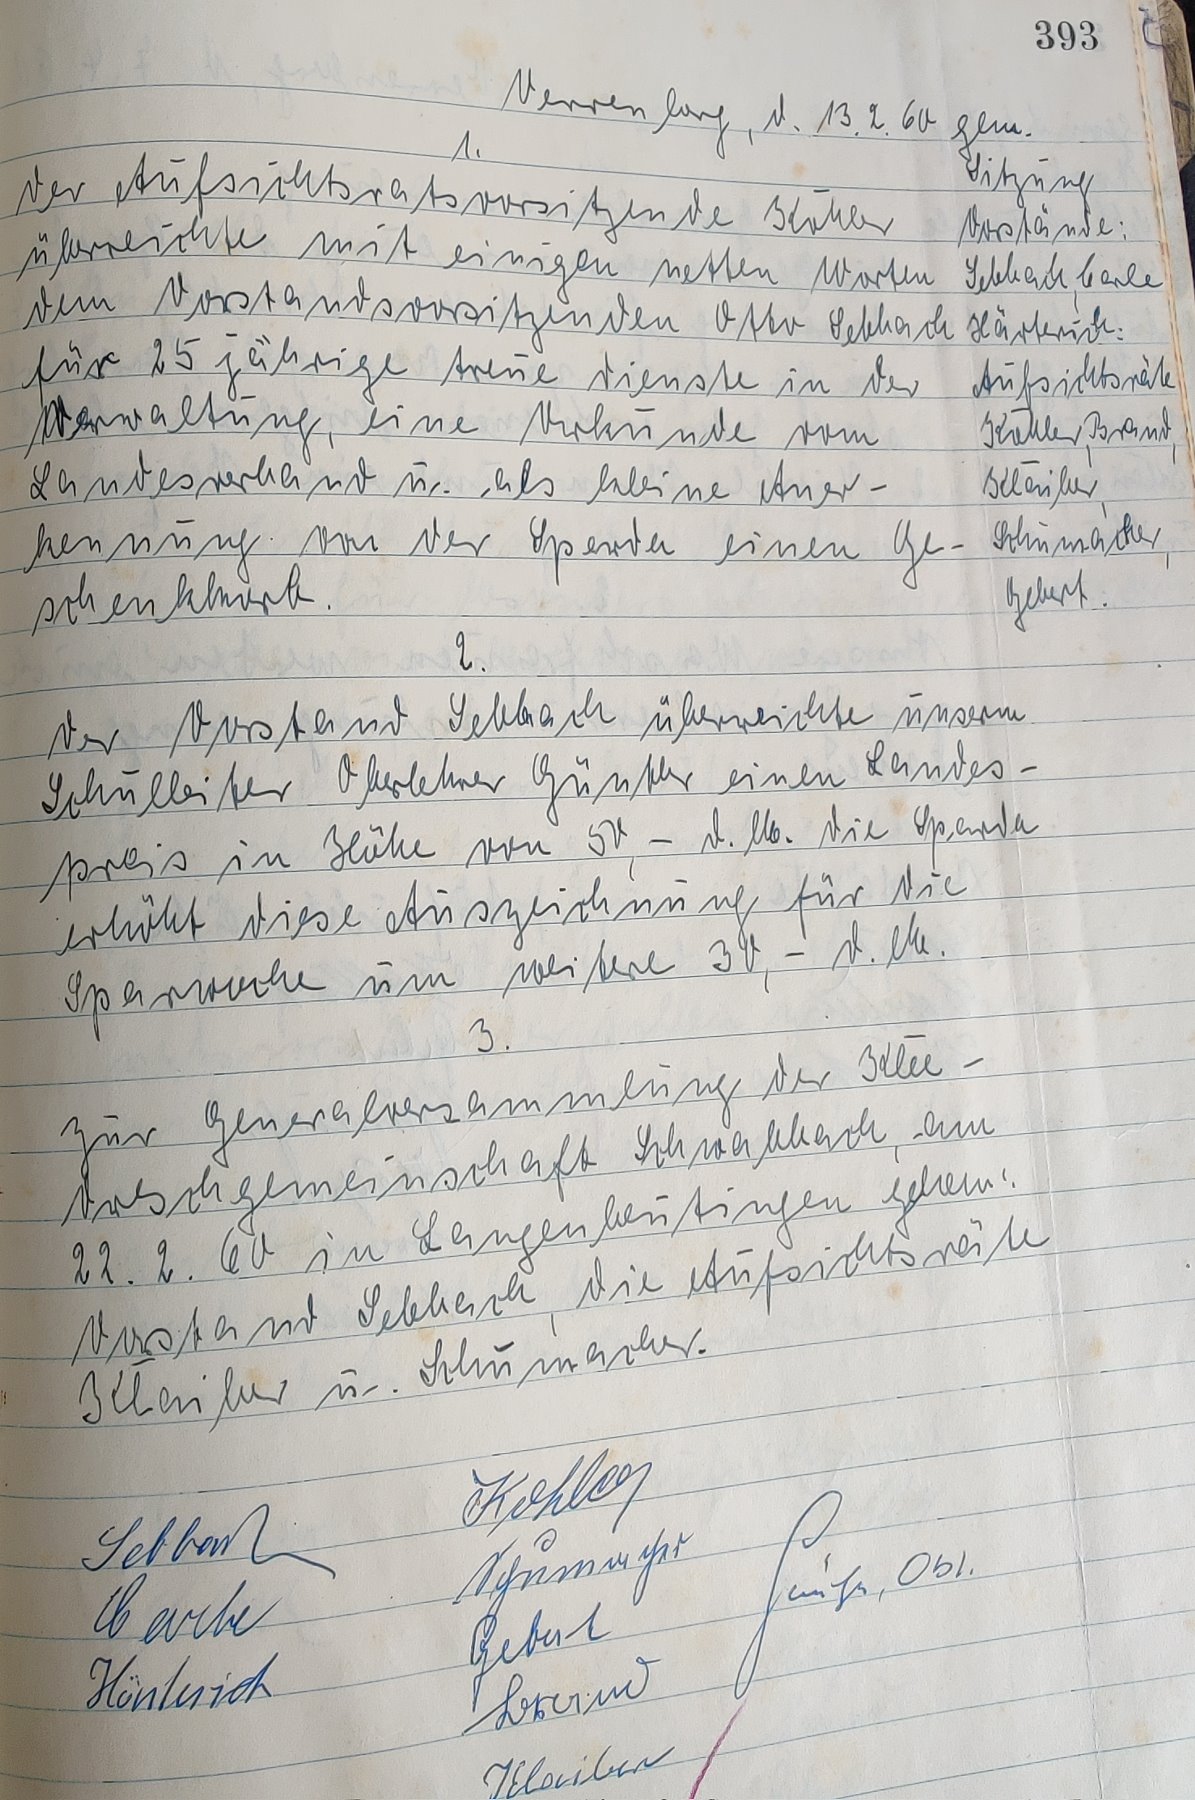 393
Verrenberg, d. 13.2.60 gem.
Sitzung
Vorstände:
Sebbach, Carle
Härterich:
Aufsichtsräte
Köhler, Brand,
Klaiber,
Schumacher,
Gebert.
1.
Der Aufsichtsratsvorsitzende Köhler
überreichte mit einigen netten Worten
dem Vorstandsvorsitzenden Otto Sebbach
für 25 jährige treue Dienste in der
Verwaltung, eine Urkunde vom
Landesverband u. als kleine Aner-
kennung von der Sparda einen Ge-
schenkkorb.
2.
Der Vorstand Sebbach überreichte unserm
Schulleiter Oberlehrer Günter einen Landes-
preis in Höhe von 50,- d.M. die Sparda
erhöht diese Auszeichnung für die
Sparwoche um weitere 30,- d.M.
3.
Zur Generalversammlung der Klee-
dreschgemeinschaft Schwabbach, am
22.2.60 in Langenbeutingen gehen:
Vorstand Sebbach, die Aufsichtsräte
Klaiber u. Schumacher.
Sebbach
Carle
Härterich
Köhler
Schumacher
Gebert
Brand
Klaiber